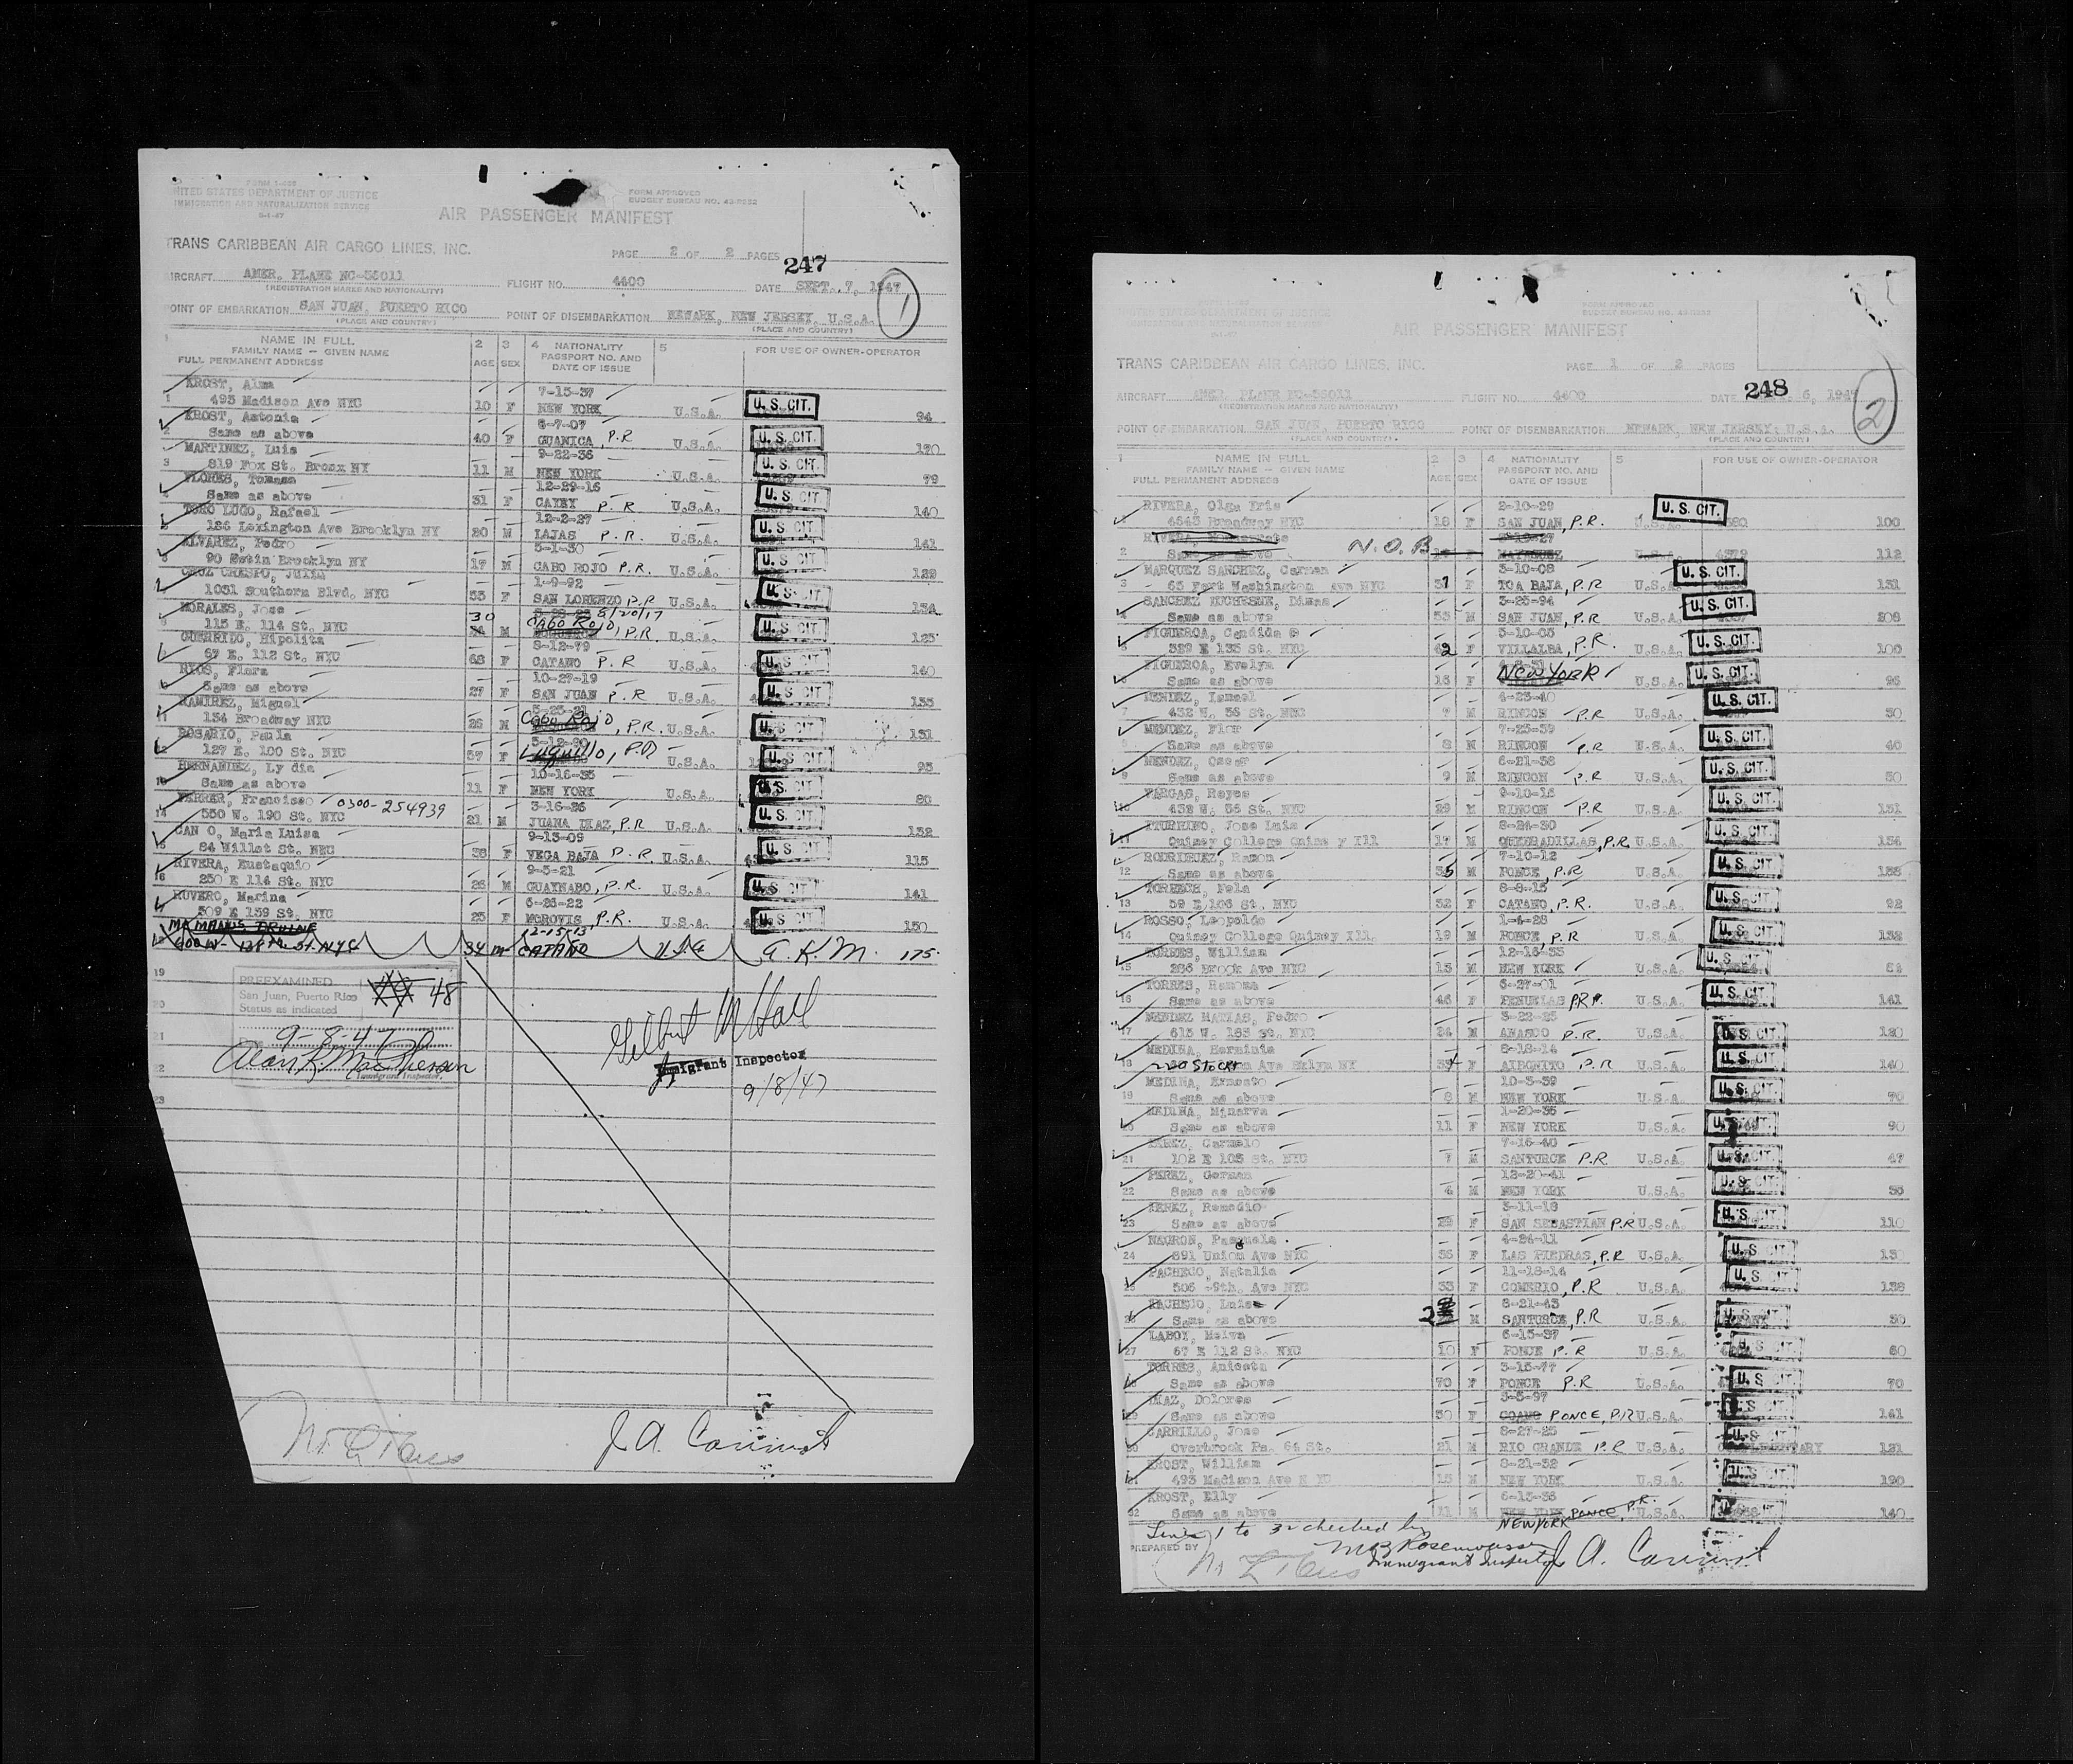 FORM I-466
UNITED STATES DEPARTMENT OF JUSTICE
IMMIGRATION AND NATURALIZATION SERVICE
FORM APPROVED
BUDGET BUREAU NO.
AIR PASSENGER MANIFEST
TRANS CARIBBEAN AIR CARGO LINES, INC.
PAGE 2 OF 2 PAGES
247
AIRCRAFT AMER. PLANE NC-36011
(REGISTRATION MARKS AND NATIONALITY)
FLIGHT NO. 4400
DATE SEPT. 7, 1947
1
POINT OF EMBARKATION SAN JUAN, PUERTO RICO
(PLACE AND COUNTRY)
POINT OF DISEMBARKATION NEWARK, NEW JERSEY, U.S.A.
(PLACE AND COUNTRY)
1 NAME IN FULL 2 3 4 NATIONALITY 5 FOR USE OF OWNER-OPERATOR
FAMILY NAME — GIVEN NAME AGE SEX PASSPORT NO. AND
FULL PERMANENT ADDRESS DATE OF ISSUE
KROST, Alma 7-15-37
1 493 Madison Ave NYC 10 F NEW YORK U.S.A. U. S. CIT. 94
KROST, Antonia 6-7-07
2 Same as above 40 F GUANICA, P.R U.S.A. U. S. CIT. 170
MARTINEZ, Luis 9-22-36
3 819 Fox St. Bronx NY 11 M NEW YORK U.S.A. U. S. CIT. 79
FLORES, Tomasa 12-29-16
Same as above 31 F CAYEY P.R U.S.A. U. S. CIT. 140
TORO LUGO, Rafael 12-2-27
186 Lexington Ave Brooklyn NY 20 M LAJAS P.R. U.S.A. U. S. CIT. 141
ALVAREZ, Pedro 5-1-30
90 Brooklyn NY 17 M CABO ROJO P.R. U.S.A. U. S. CIT. 129
CRUZ CRESPO, Julia 1-9-92
1051 Southern Blvd. NYC 55 F SAN LORENZO P.R U.S.A. U. S. CIT. 134
MORALES, Jose 5/20/17
115 E. 114 St. NYC 30 M CABO ROJO, P.R. U.S.A. U. S. CIT. 125
GUERRIDO, Hipolita 8-12-79
67 E. 112 St. NYC 68 F CATANO P.R U.S.A. U. S. CIT. 140
RIOS, Flora 10-27-19
Same as above 27 F SAN JUAN P.R U.S.A. U. S. CIT 135
RAMIREZ, Miguel 5-25-21
11 134 Broadway NYC 26 M CABO ROJO, P.R. U.S.A. U. S CIT 131
ROSARIO, Paula
12 127 E. 100 St. NYC 57 F Luquillo, P.R U.S.A. U. S. CIT. 95
HERNANDEZ, Ly dia 10-16-35
Same as above 11 F NEW YORK U.S.A. U. S. CIT. 80
FERRER, Francisco 0300-254939 3-16-26
14 550 W. 190 St. NYC 21 M JUANA DIAZ, P.R U.S.A. U. S. CIT. 132
CAN O, Maria Luisa 9-13-09
84 Willet St. NYC 38 F VEGA BAJA P.R U.S.A. U. S. CIT 115
RIVERA, Eustaquio 9-5-21
16 230 E 114 St. NYC 26 M GUAYNABO, P.R. U.S.A. U. S. CIT 141
RUVERO, Marina 6-26-22
509 E 139 St. NYC 25 F MOROVIS, P.R. U.S.A. U. S. CIT 150
12-15-13
600 W. 138th St. NYC 34 M CATAÑO U.S.A A. K. M. 175.
19
PREEXAMINED
San Juan, Puerto Rico 48
Status as indicated
20
9-8-47
21
Immigrant Inspector
22
23
Gilbert M Hall
Immigrant Inspector
9/8/47
AIR PASSENGER MANIFEST
TRANS CARIBBEAN AIR CARGO LINES, INC.
PAGE 1 OF 2 PAGES
248
AIRCRAFT AMER. PLANE NC-36011
(REGISTRATION MARKS AND NATIONALITY)
FLIGHT NO. 4400
DATE 6, 1947
2
POINT OF EMBARKATION SAN JUAN, PUERTO RICO
(PLACE AND COUNTRY)
POINT OF DISEMBARKATION NEWARK, NEW JERSEY, U.S.A.
(PLACE AND COUNTRY)
1 NAME IN FULL 2 3 4 NATIONALITY 5 FOR USE OF OWNER-OPERATOR
FAMILY NAME — GIVEN NAME AGE SEX PASSPORT NO. AND
FULL PERMANENT ADDRESS DATE OF ISSUE
RIVERA, Olga Iris 2-10-29
4645 Broadway NYC 18 F SAN JUAN, P.R. U.S.A. U. S. CIT. 100
RIVERA,
2 Same as above N.O.B. F MAYAGUEZ U.S.A. 4379 112
MARQUEZ SANCHEZ, Carmen 3-10-08
3 65 Fort Washington Ave NYC 37 F TOA BAJA, P.R U.S.A. U. S. CIT. 131
SANCHEZ DUCHESNE, Dimas 3-25-94
4 Same as above 53 M SAN JUAN, P.R U.S.A. U. S. CIT. 208
FIGUEROA, Candida 5-10-05
529 E 135 St. NYC 42 F VILLALBA, P.R. U.S.A. U. S. CIT. 100
FIGUEROA, Evelyn
Same as above 16 F NEW YORK U.S.A. U. S. CIT. 96
MENDEZ, Ismael 4-23-40
432 W. 56 St. NYC 7 M RINCON P.R U.S.A. U. S. CIT. 50
MENDEZ, Flor 7-25-39
Same as above 8 M RINCON P.R U.S.A. U. S. CIT. 40
MENDEZ, Oscar 6-21-38
9 Same as above 9 M RINCON P.R U.S.A. U. S. CIT. 50
VARGAS, Reyes 9-10-18
432 W. 56 St. NYC 29 M RINCON P.R U.S.A. U. S. CIT. 131
ITURRINO, Jose Luis 8-24-30
11 Quincy College Quinc y Ill 17 M QUEBRADILLAS, P.R. U.S.A. U. S. CIT. 154
RODRIGUEZ, Ramon 7-10-12
12 Same as above 35 M PONCE, P.R U.S.A. U. S. CIT. 138
TORRECH, Fela 8-8-15
13 59 E 106 St. NYC 32 F CATANO, P.R. U.S.A. U. S. CIT. 92
ROSSO, Leopoldo 1-4-28
14 Quincy College Quincy Ill. 19 M PONCE, P.R U.S.A. U. S. CIT. 132
TORRES, William 12-16-33
15 286 Brook Ave NYC 13 M NEW YORK U.S.A. U. S. CIT.
TORRES, Ramona 5-27-01
16 Same as above 46 F PENUELAS P.R. U.S.A. U. S. CIT. 141
MENDEZ MATIAS, Pedro 3-22-23
17 615 W. 183 St. NYC 24 M ANASCO P.R. U.S.A. U. S. CIT. 120
MEDINA, Herminia 8-18-14
18 220 Stockt on Ave Bklyn NY 33 F AIBONITO P.R U.S.A. U. S. CIT. 140
MEDINA, Ernesto 10-3-39
19 Same as above 8 M NEW YORK U.S.A. U. S. CIT. 70
MEDINA, Minerva 1-20-36
Same as above 11 F NEW YORK U.S.A. U. S. CIT. 90
PEREZ, Carmelo 7-16-40
21 102 E 103 St. NYC 7 M SANTURCE P.R. U.S.A. U. S. CIT 47
PEREZ, German 12-20-41
22 Same as above 4 M NEW YORK U.S.A. U. S CIT 55
PEREZ, Remedio 3-11-18
23 Same as above 29 F SAN SEBASTIAN P.R U.S.A. U. S. CIT 110
NEGRON, Pascuala 4-24-11
24 891 Union Ave NYC 36 F LAS PIEDRAS, P.R U.S.A. U. S CIT
PACHECO, Natalia 11-18-14
506 -9th. Ave NYC 33 F COMERIO, P.R U.S.A. U. S. CIT 138
PACHECO, Luis 8-21-45
Same as above 2 M SANTURCE, P.R U.S.A. U. S. CIT
LABOY, Melva 6-15-37
27 67 E 112 St. NYC 10 F PONCE P.R U.S.A. U. S. CIT 60
TORRES, Aniceta 3-15-77
Same as above 70 F PONCE P.R U.S.A. U. S CIT 70
DIAZ, Dolores 3-5-97
Same as above 50 F COAMO PONCE, P.R U.S.A. U. S. CIT. 141
CARRILLO, Jose 8-27-25
30 Overbrook Pa. 64 St. 21 M RIO GRANDE P.R U.S.A. U. S. CIT COMPLEMENTARY 121
KROST, William 8-21-32
493 Madison Ave N YC 15 M NEW YORK U.S.A. U. S. CIT. 190
KROST, Elly 6-13-36
32 Same as above 11 M PONCE, P.R. U.S.A. 140
NEW YORK
Lines 1 to 32 checked by
Immigrant Inspector
PREPARED BY